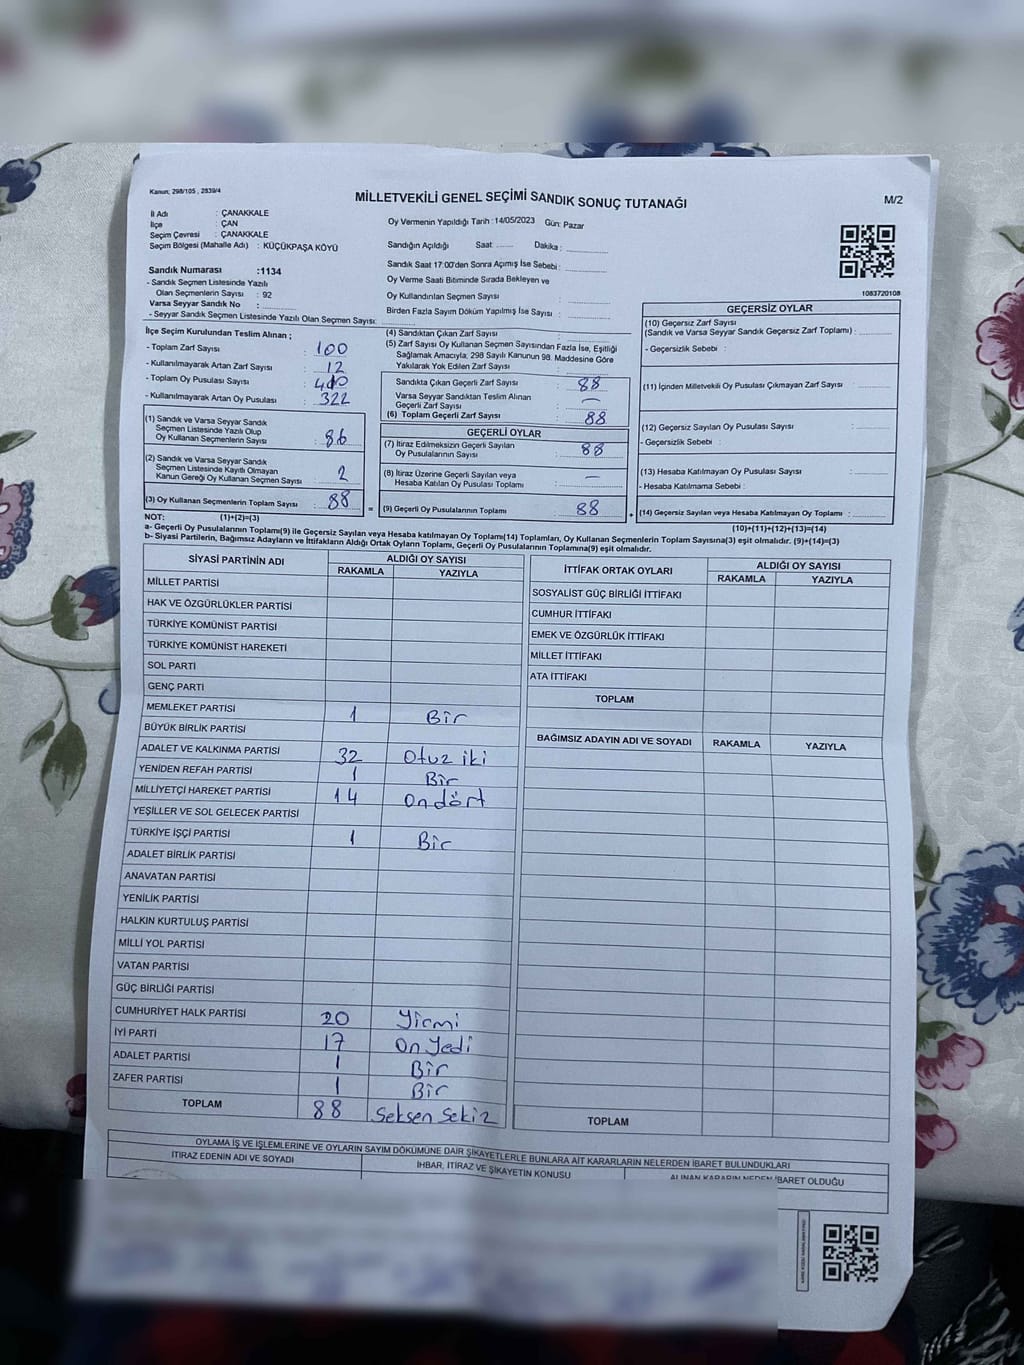 Kanun; 298/105 , 2839/4
MİLLETVEKİLİ GENEL SEÇİMİ SANDIK SONUÇ TUTANAĞI
M/2
İl Adı : ÇANAKKALE
İlçe : ÇAN
Seçim Çevresi : ÇANAKKALE
Seçim Bölgesi (Mahalle Adı) : KÜÇÜKPAŞA KÖYÜ
Oy Vermenin Yapıldığı Tarih :14/05/2023 Gün: Pazar
Sandığın Açıldığı Saat ...... Dakika:
Sandık Saat 17:00'den Sonra Açımış İse Sebebi:
Oy Verme Saati Bitiminde Sırada Bekleyen ve
Oy Kullandırılan Seçmen Sayısı :
Birden Fazla Sayım Döküm Yapılmış İse Sayısı :
1083720108
Sandık Numarası :1134
- Sandık Seçmen Listesinde Yazılı
Olan Seçmenlerin Sayısı : 92
Varsa Seyyar Sandık No :
- Seyyar Seçmen Listesinde Yazılı Olan Seçmen Sayısı:
İlçe Seçim Kurulundan Teslim Alınan ;
- Toplam Zarf Sayısı : 100
- Kullanılmayarak Artan Zarf Sayısı : 12
- Toplam Oy Pusulası Sayısı :
- Kullanılmayarak Artan Oy Pusulası : 322
(1) Sandık ve Varsa Seyyar Sandık
Seçmen Listesinde Yazılı Olup
Oy Kullanan Seçmenlerin Sayısı : 86
(2) Sandık ve Varsa Seyyar Sandık
Seçmen Listesinde Kayıtlı Olmayan
Kanun Gereği Oy Kullanan Seçmen Sayısı : 2
(3) Oy Kullanan Seçmenlerin Toplam Sayısı : 88
(4) Sandıktan Çıkan Zarf Sayısı :
(5) Zarf Sayısı Oy Kullanan Seçmen Sayısından Fazla İse, Eşitliği
Sağlamak Amacıyla, 298 Sayılı Kanunun 98. Maddesine Göre
Yakılarak Yok Edilen Zarf Sayısı :
Sandıkta Çıkan Geçerli Zarf Sayısı : 88
Varsa Seyyar Sandıktan Teslim Alınan
Geçerli Zarf Sayısı : –
(6) Toplam Geçerli Zarf Sayısı : 88
GEÇERLİ OYLAR
(7) İtiraz Edilmeksizin Geçerli Sayılan
Oy Pusulalarının Sayısı : 88
(8) İtiraz Üzerine Geçerli Sayılan veya
Hesaba Katılan Oy Pusulası Toplamı : –
= (9) Geçerli Oy Pusulalarının Toplamı : 88
GEÇERSİZ OYLAR
(10) Geçersiz Zarf Sayısı
(Sandık ve Varsa Seyyar Sandık Geçersiz Zarf Toplamı) :
- Geçersizlik Sebebi :
(11) İçinden Milletvekili Oy Pusulası Çıkmayan Zarf Sayısı :
(12) Geçersiz Sayılan Oy Pusulası Sayısı :
- Geçersizlik Sebebi :
(13) Hesaba Katılmayan Oy Pusulası Sayısı :
- Hesaba Katılmama Sebebi :
+ (14) Geçersiz Sayılan veya Hesaba Katılmayan Oy Toplamı :
NOT: (1)+(2)=(3)
(10)+(11)+(12)+(13)=(14)
a- Geçerli Oy Pusulalarının Toplamı(9) ile Geçersiz Sayılan veya Hesaba katılmayan Oy Toplamı(14) Toplamları, Oy Kullanan Seçmenlerin Toplam Sayısına(3) eşit olmalıdır. (9)+(14)=(3)
b- Siyasi Partilerin, Bağımsız Adayların ve İttifakların Aldığı Ortak Oyların Toplamı, Geçerli Oy Pusulalarının Toplamına(9) eşit olmalıdır.
SİYASİ PARTİNİN ADI ALDIĞI OY SAYISI
RAKAMLA YAZIYLA
MİLLET PARTİSİ
HAK VE ÖZGÜRLÜKLER PARTİSİ
TÜRKİYE KOMÜNİST PARTİSİ
TÜRKİYE KOMÜNİST HAREKETİ
SOL PARTİ
GENÇ PARTİ
MEMLEKET PARTİSİ 1 Bir
BÜYÜK BİRLİK PARTİSİ
ADALET VE KALKINMA PARTİSİ 32 Otuz iki
YENİDEN REFAH PARTİSİ 1 Bir
MİLLİYETÇİ HAREKET PARTİSİ 14 Ondört
YEŞİLLER VE SOL GELECEK PARTİSİ
TÜRKİYE İŞÇİ PARTİSİ 1 Bir
ADALET BİRLİK PARTİSİ
ANAVATAN PARTİSİ
YENİLİK PARTİSİ
HALKIN KURTULUŞ PARTİSİ
MİLLİ YOL PARTİSİ
VATAN PARTİSİ
GÜÇ BİRLİĞİ PARTİSİ
CUMHURİYET HALK PARTİSİ 20 Yirmi
İYİ PARTİ 17 On Yedi
ADALET PARTİSİ 1 Bir
ZAFER PARTİSİ 1 Bir
TOPLAM 88 Seksen Sekiz
İTTİFAK ORTAK OYLARI ALDIĞI OY SAYISI
RAKAMLA YAZIYLA
SOSYALİST GÜÇ BİRLİĞİ İTTİFAKI
CUMHUR İTTİFAKI
EMEK VE ÖZGÜRLÜK İTTİFAKI
MİLLET İTTİFAKI
ATA İTTİFAKI
TOPLAM
BAĞIMSIZ ADAYIN ADI VE SOYADI RAKAMLA YAZIYLA
TOPLAM
OYLAMA İŞ VE İŞLEMLERİNE VE OYLARIN SAYIM DÖKÜMÜNE DAİR ŞİKAYETLERLE BUNLARA AİT KARARLARIN NELERDEN İBARET BULUNDUKLARI
İTİRAZ EDENİN ADI VE SOYADI
İHBAR, İTİRAZ VE ŞİKAYETİN KONUSU
ALINAN KARARIN NEDEN İBARET OLDUĞU